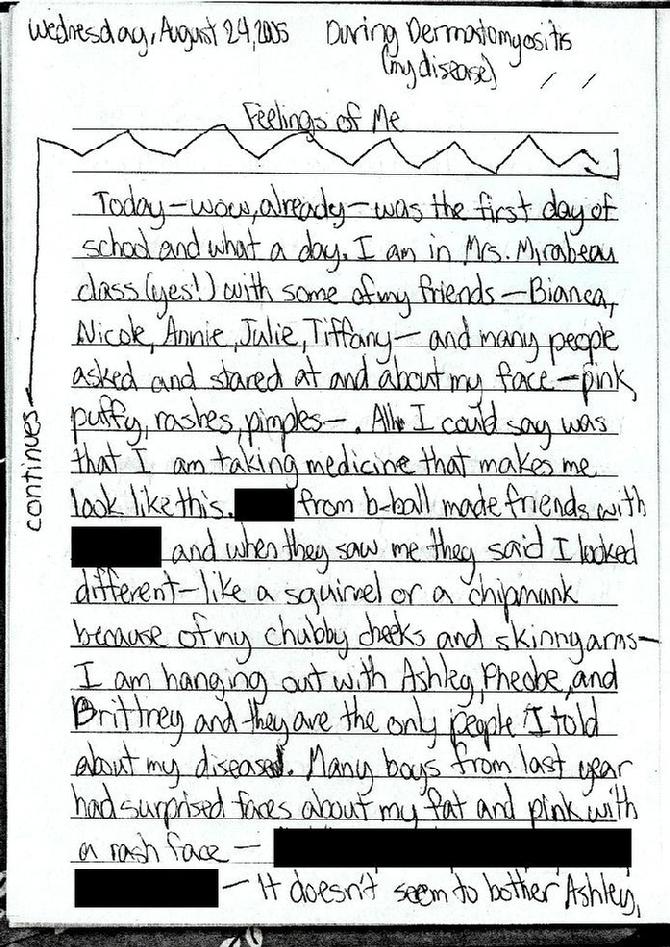 Wednesday, August 24, 2005 During Dermatomyositis
(my disease)
Feelings of Me
Today - wow, already - was the first day of
school and what a day. I am in Mrs. Mirabeau
class (yes!) with some of my friends - Bianca,
Nicole, Annie, Julie, Tiffany - and many people
asked and stared at and about my face - pink,
puffy, rashes, pimples -. All I could say was
that I am taking medicine that makes me
look like this. from b-ball made friends with
and when they saw me they said I looked
different - like a squirrel or a chipmunk
because of my chubby cheeks and skinny arms -
I am hanging out with Ashley, Pheobe, and
Brittney and they are the only people I told
about my disease. Many boys from last year
had surprised faces about my fat and pink with
a rash face -
- It doesn't seem to bother Ashley,
continues